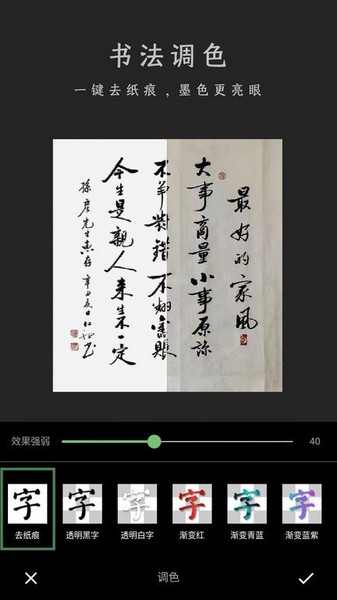 书法调色
一键去纸痕，墨色更亮眼
最好的家风
大事商量小事原谅
不争對錯不翻舊賬
今生是親人来生不一定
先生惠存辛丑
效果强弱
40
去纸痕
透明黑字
透明白字
渐变红
渐变青蓝
渐变蓝紫
字
字
字
字
字
字
调色